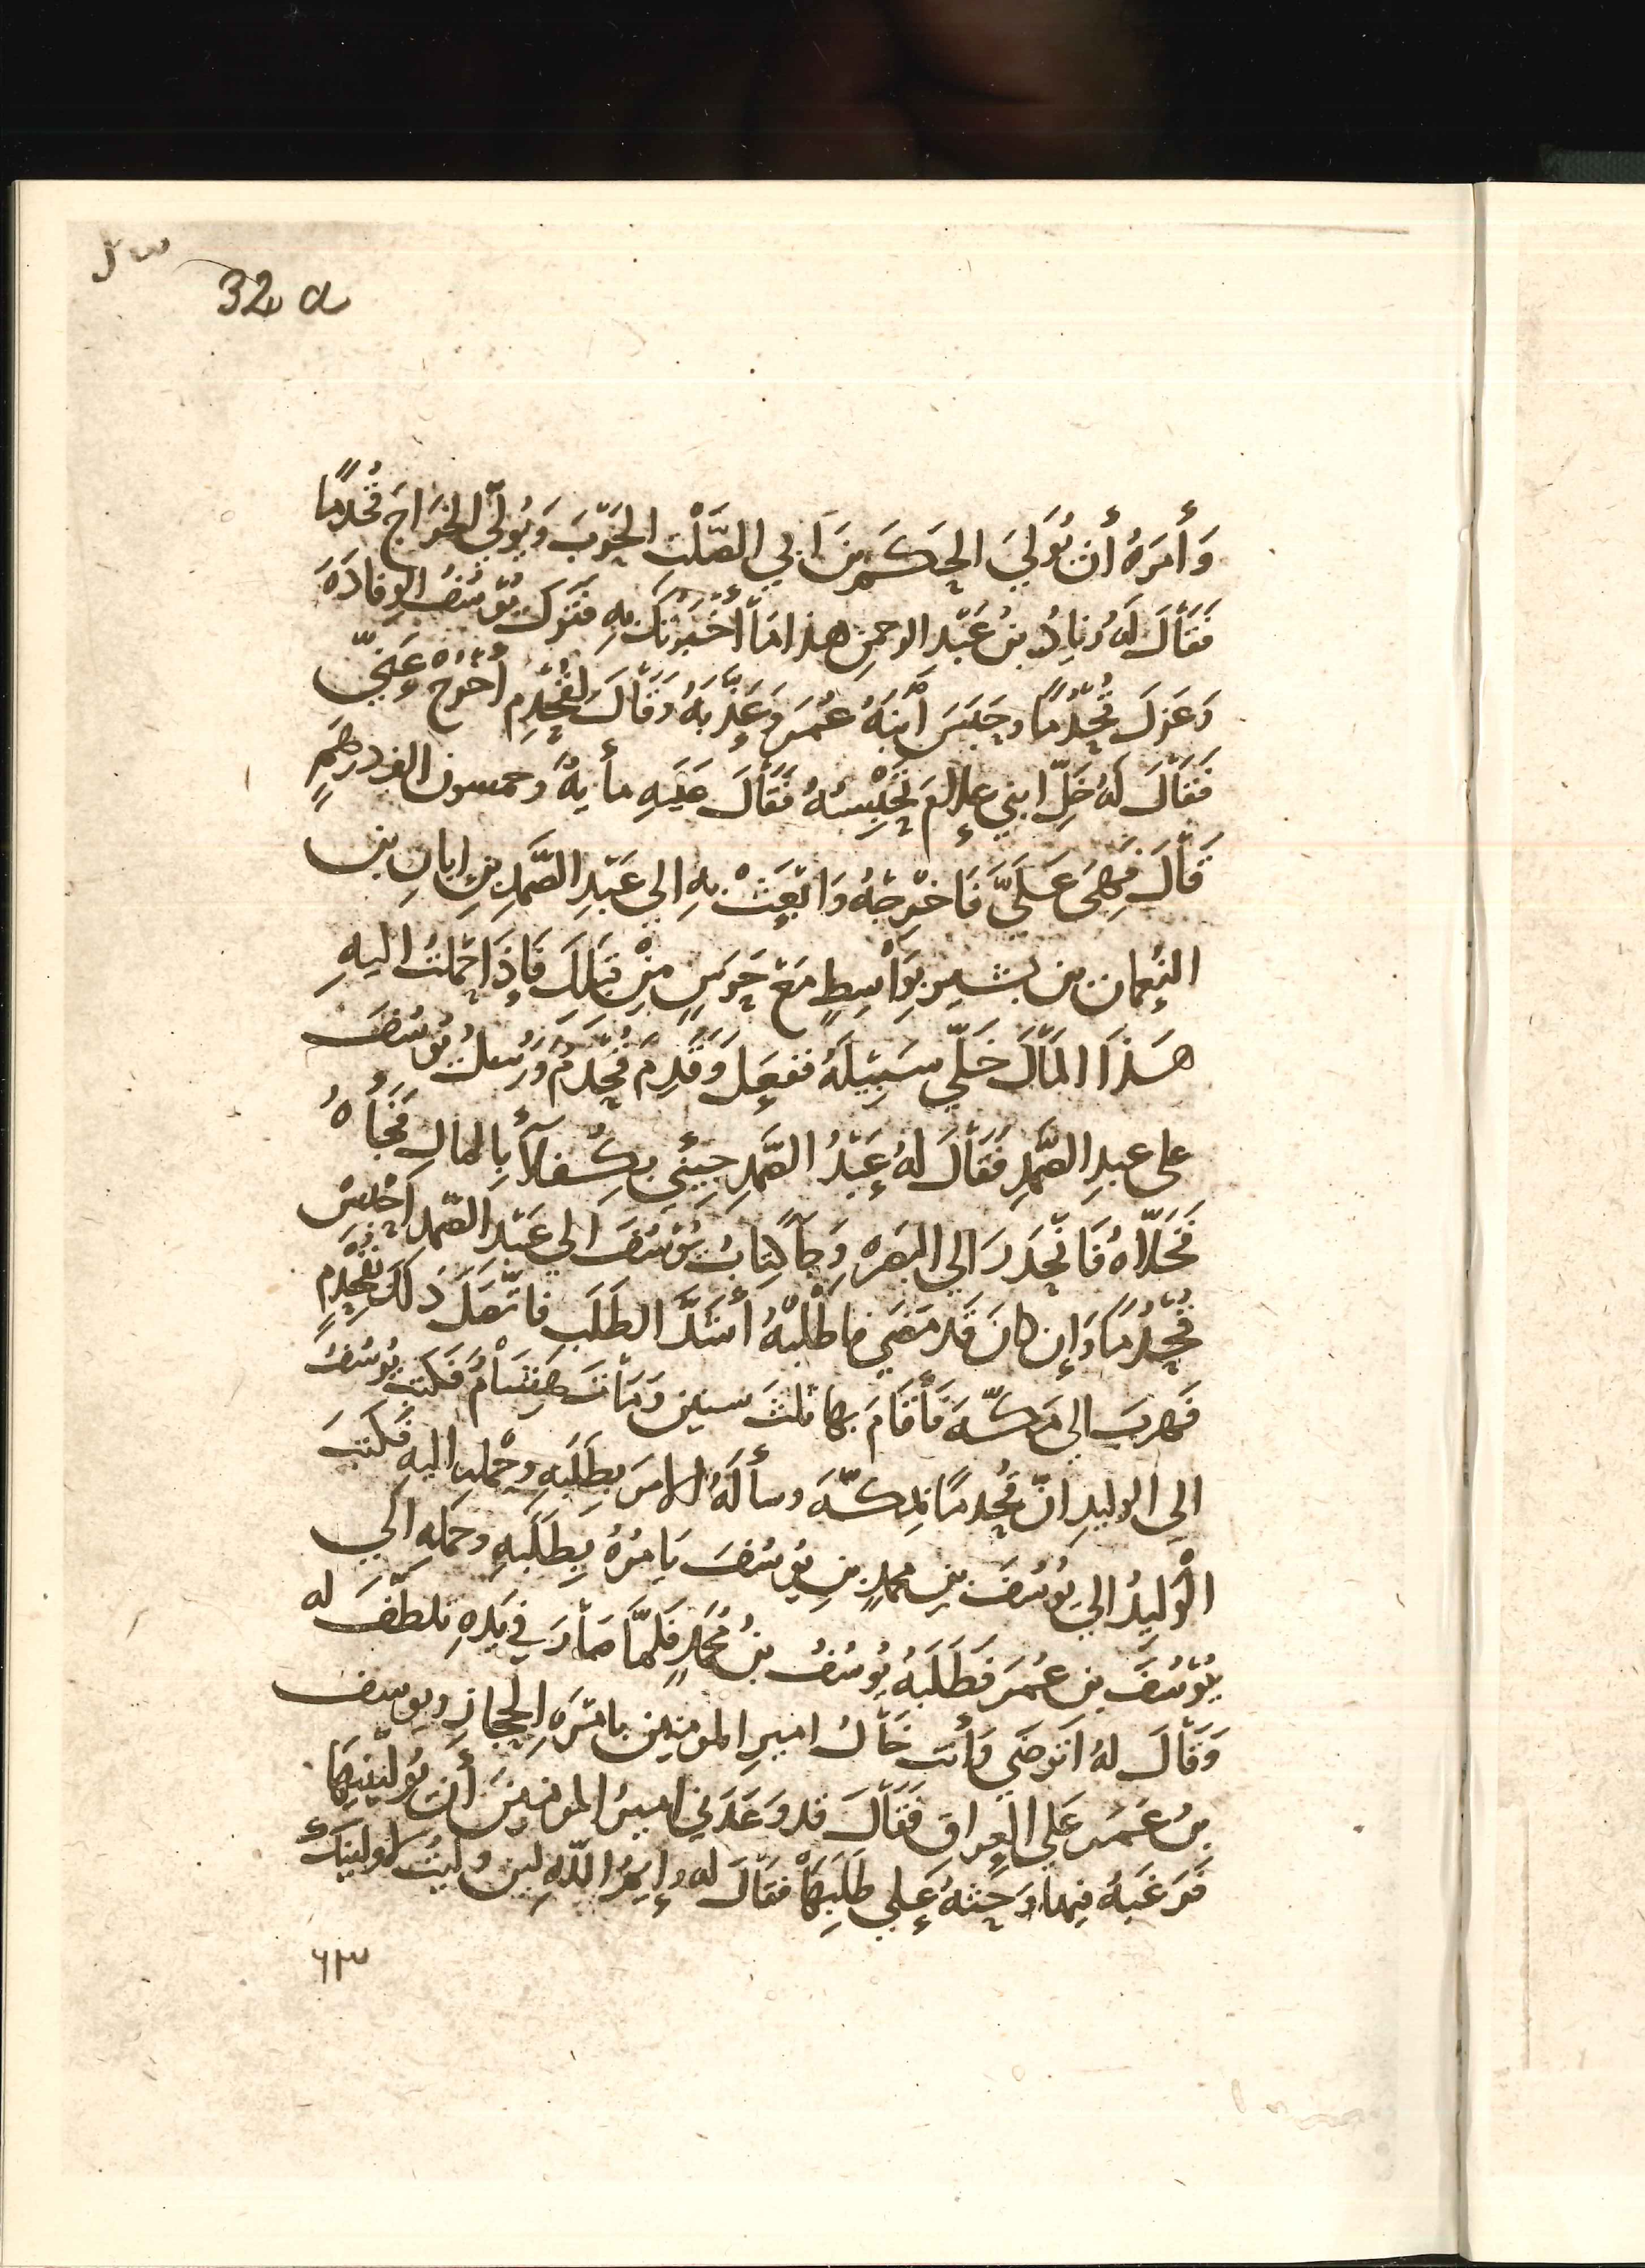 32 a
وَأَمَرَهُ أَن يُوَلِيَ الحَكَمَ بنَ اَبي الصَّلْتِ الحَرْبَ وَيُولّيَ الخَرَاجَ قُحْذمًا
فَقَاْلَ لَهُ زِيادُ بنُ عَبْدِ الرحمنِ هذا مَا أُخْبَرْتُكَ بِهِ فَتَرَك يُوْسُفُ الوِفَادَةَ
وَعَزَلَ قُحْذُمًا وحَبَسَ اَبْنَهُ عُمَرَ وَعَذَّبَهُ وَقَاْلَ لقُحْذمٍ اخرج عَنِيّ
فَقَاْلَ لَهُ خَلِّ ابني علامَ تَحْبِسُهُ فَقَاْلَ عَلَيهِ مأيةٌ وخمسون الف درهَمٍ
قَاْلَ فَهِيَ عَلَيَّ فَاخْرِجْهُ وَابْعَثْ بِهِ الى عَبْدِ الصَّمَدِ بنِ ابانِ بن
النعمان بن بشيرٍ بِوَاْسِطٍ مَعَ حَرَسٍ مِنْ قِبَلِكَ فَإِذَا حَمَلتُ اليهِ
هَذَا المَاْلَ خَلّي سَبِيْلَهُ ففعَلَ وَقَدِمَ قُحْذمٌ وَرُسُلُ يُوسُفَ
على عبدِ الصَّمَدِ فَقَاْلَ لَهُ عَبْدُ الصَّمَدِ جِيئني بكُفلَآءَ بِالمالِ فَجَاْءهُ
فَخَلّاهُ فَانْحَدَرَ الى البَصرهِ وَجَآ كِتابُ يُوْسُفَ الى عَبْدِ الصَّمَدِ احْبِسْ
قُحْذُمًا وَإِن كانَ قَد مَضَي فاطْلُبْهُ أشَدَّ الطَلَبِ فاتّصَلَ ذَلكَ بقُحْذمٍ
فَهربَ الى مَكّهَ فَأَقَامَ بها ثلثَ سنينَ وَمَاْتَ هِشَاْمٌ فَكتب يُوسُفُ
الى الوليدِ انّ قُحْذمًا بمَكّهَ وسألَهُ الامرَ بِطَلَبِهِ وحَمْلهِ اليهِ فَكَتبَ
الْوَلِيدُ الىَ يُوسُفَ بنِ محمدٍ بنِ يُوسُفَ يَامُرُهُ بِطَلَبِهِ وحمله الي
يُوْسُفَ بن عُمَرَ فَطَلَبَهُ يُوسُفُ بنُ مُحَمَّدٍ فَلمَّا صَاْرَ في يَدِهِ تلطَّفَ له
وَقَاْلَ لهُ اَتَرضَي وَأنت خَاْلُ اميرِ المومنين بامْرَةِ الحجازِ ويوسف
بنُ عمَرَ عَلى العِراقِ فَقَاْلَ قد وَعَدَني اميرُ المومنينَ أن يُوَلّينِيَها
فَرَغبَهُ فيها وَحَثّهُ عَلى طَلَبِهَا فقَاْلَ له وايمُ اللّهِ لين وليتُ لاولينكَ
٦٣